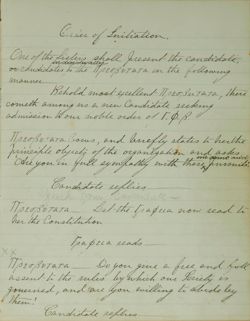 Order of Initiation.
One of the Sisters shall present the candidate,
individually
or candidates to the Πρεσβυτατα in the following
manner
Behold most excellent Πρεσβυτατα, there
cometh among us a new Candidate seeking
admission to our noble order of Γ.Φ.Β
Πρεσβυτατα and briefly states to her the
principle objects of the organization and asks
Are you in full sympathy with these pursuits
Candidate replies
Πρεσβυτατα Let the Γραφεα now read to
her the Constitution
Γραφεα reads
Πρεσβυτατα Do you give a free and full
assent to the rules by which our Society is
governed, and are you willing to abide by
them?
Candidate replies